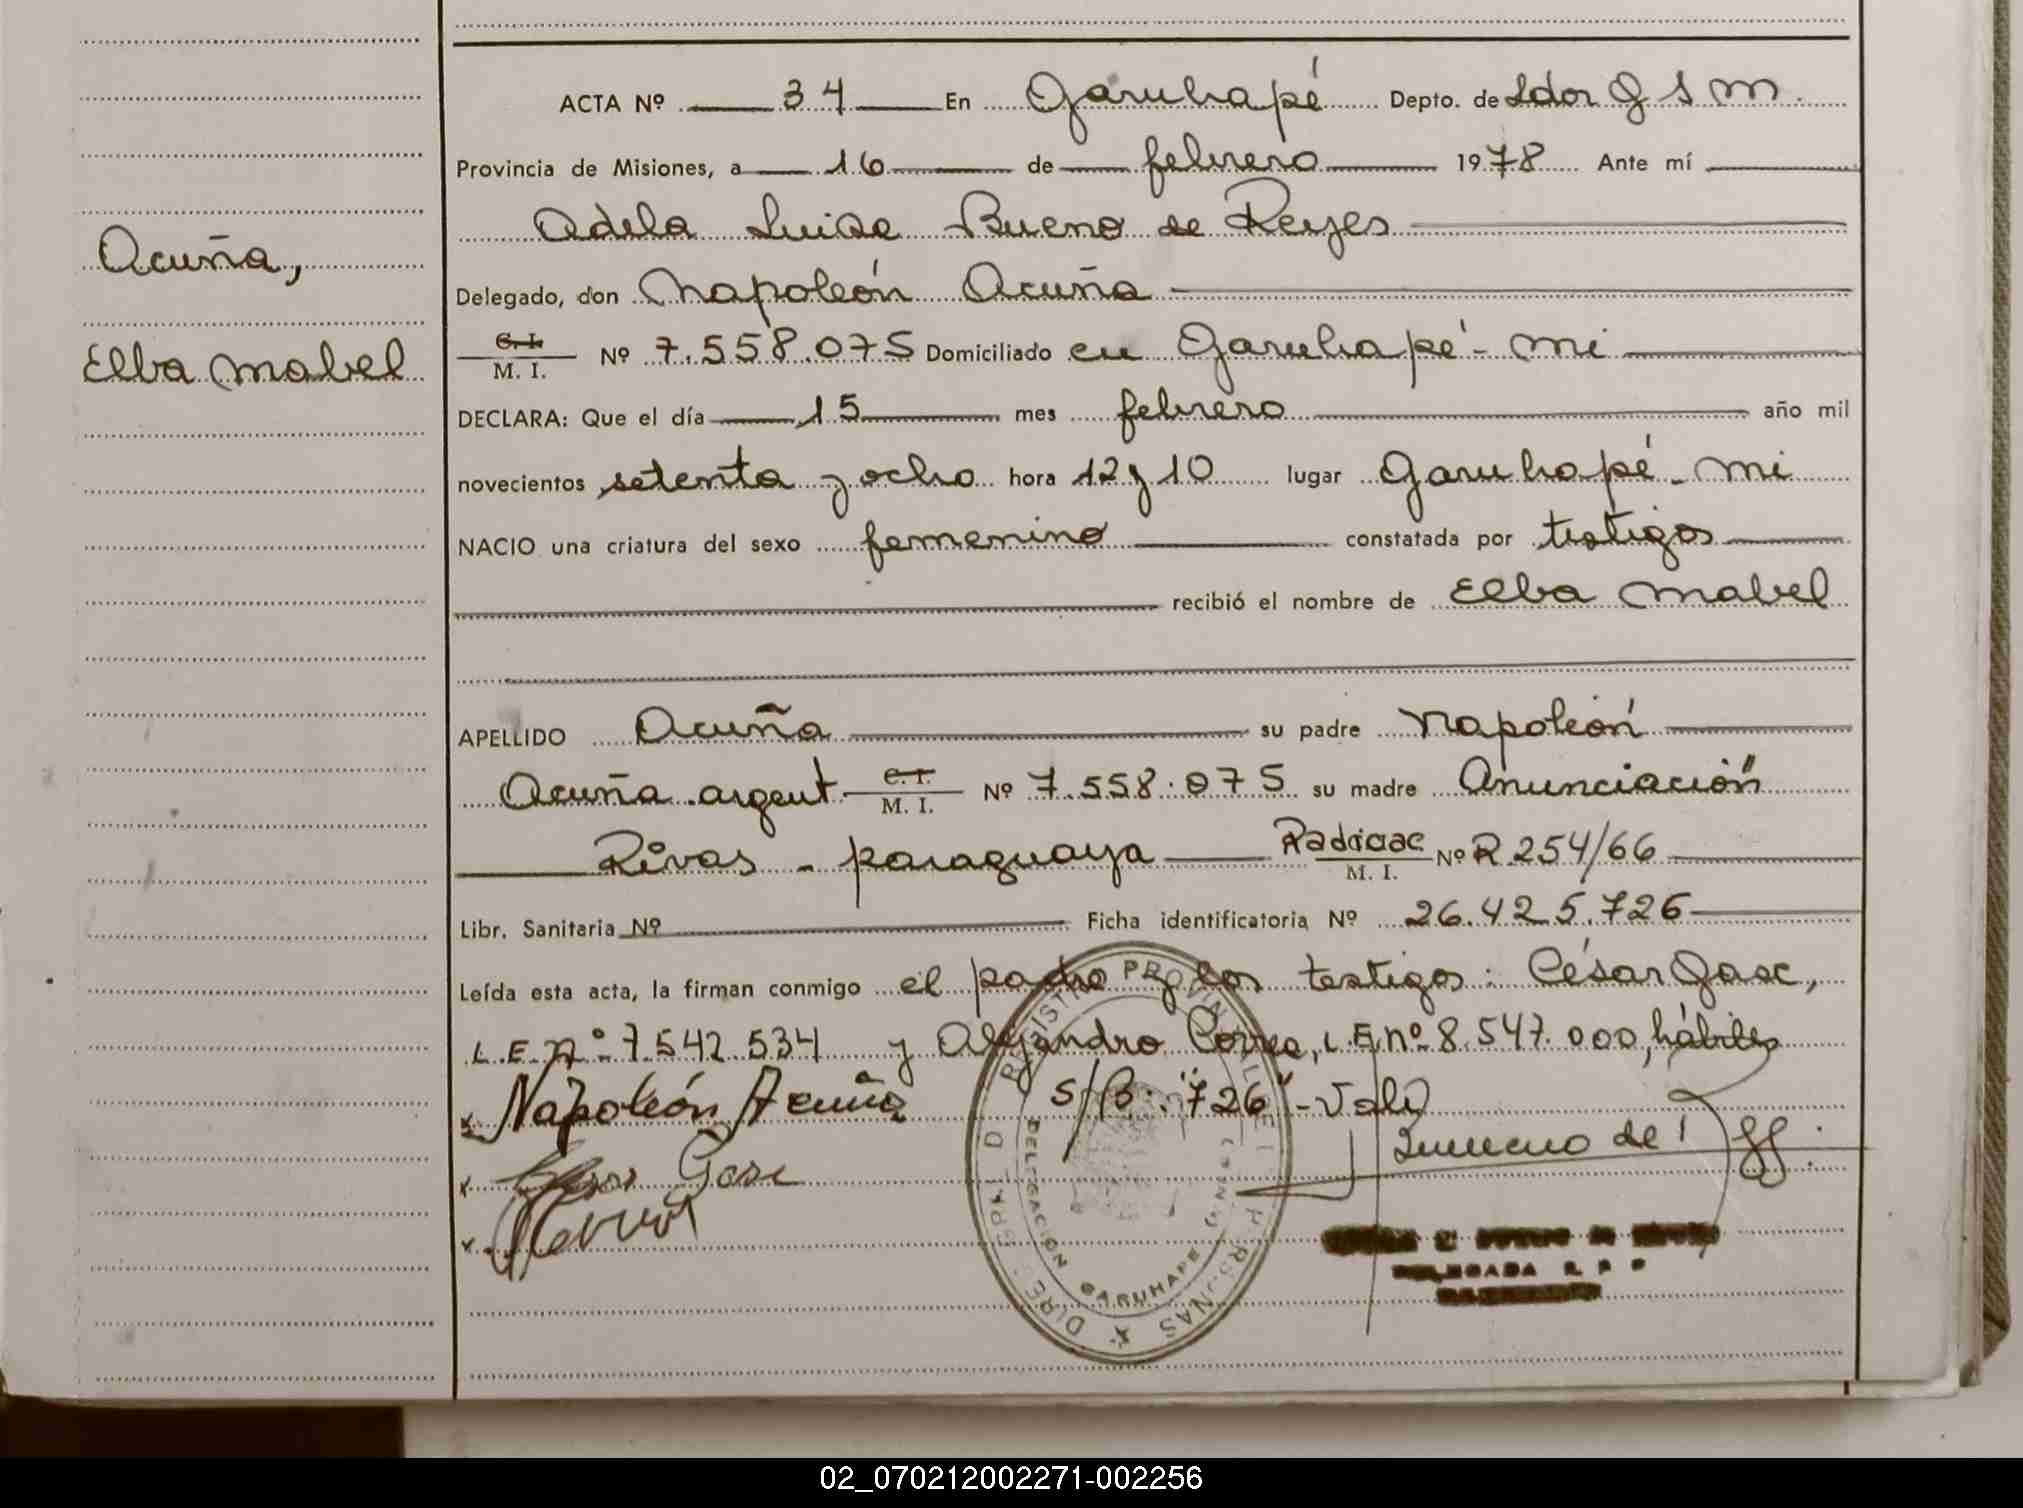 Acuña,
Elba Mabel
ACTA Nº 34 En Garuhapé Depto. de Ldor G S M.
Provincia de Misiones, a 16 de febrero 1978 Ante mí
Adela Luisa Bueno de Reyes
Delegado, don Napoleón Acuña
C. I. / M. I. Nº 7.558.075 Domiciliado en Garuhapé - Mi
DECLARA: Que el día 15 mes febrero año mil
novecientos setenta y ocho hora 12 y 10 lugar Garuhapé - Mi
NACIO una criatura del sexo femenino constatada por testigos
recibió el nombre de Elba Mabel
APELLIDO Acuña su padre Napoleón
Acuña argent. C. I. / M. I. Nº 7.558.075 su madre Anunciación
Rivas - paraguaya M. I. Nº R 254/66
Libr. Sanitaria Nº Ficha identificatoria Nº 26.425.726
Leída esta acta, la firman conmigo el padre y los testigos: César Gasc,
L.E. nº 7.542.534 y Alejandro Correa, L.E. nº 8.547.000, hábiles
x Napoleón Acuña S/B: "726" - Vale
x Gasc
x
REGISTRO PROVINCIAL
DELEGACION GARUHAPE
DELEGADA R P P
02_070212002271-002256